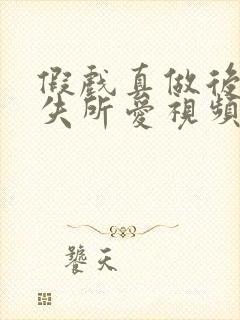 假戲真做後
失所愛視頻
饕天